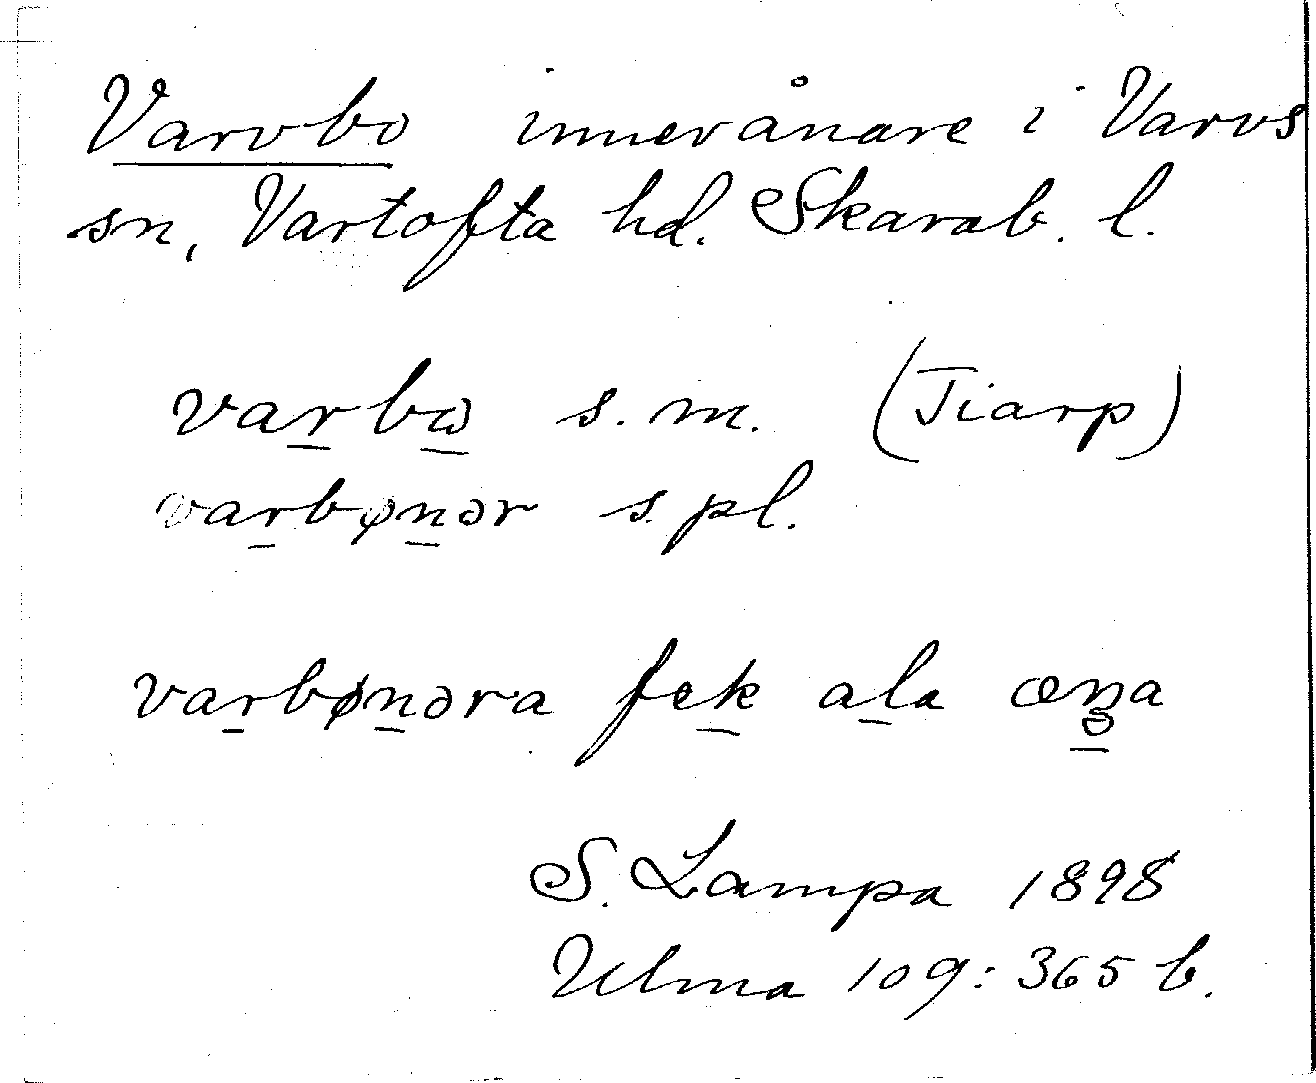 Varvbo innevånare i Varvs
sn, Vartofta hd. Skarab. l.
varbω s. m. (Tiarp)
varbønər s. pl.
varbønəra fek ala œŋa
S. Lampa 1898
Ulma 109: 365 b.